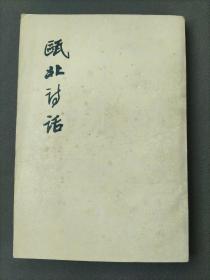 瓯北诗话